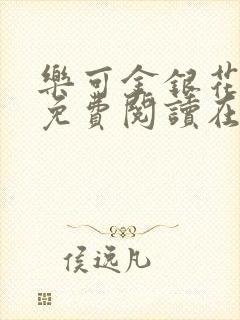 樂可金銀花
免費閱讀在
侯逸凡